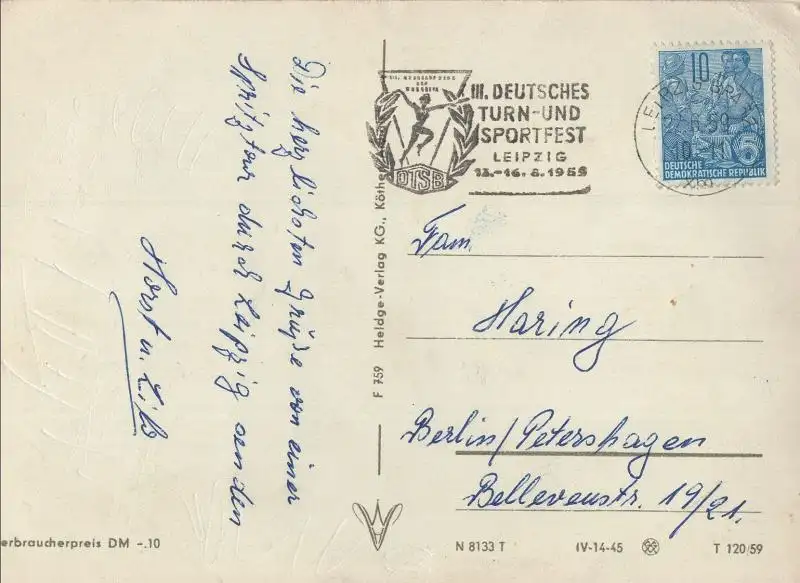 Die herzlichsten Grüße von einer
Spritztour durch Leipzig senden
Horst u.
III. DEUTSCHES
TURN- UND
SPORTFEST
LEIPZIG
13.-16. 8. 1959
DTSB
10
5
DEUTSCHE
DEMOKRATISCHE REPUBLIK
Fam.
Haring
Berlin/Petershagen
Bellevuestr. 19/21.
F 759 Heldge-Verlag KG., Köthe
erbraucherpreis DM -.10
N 8133 T IV-14-45 T 120/59